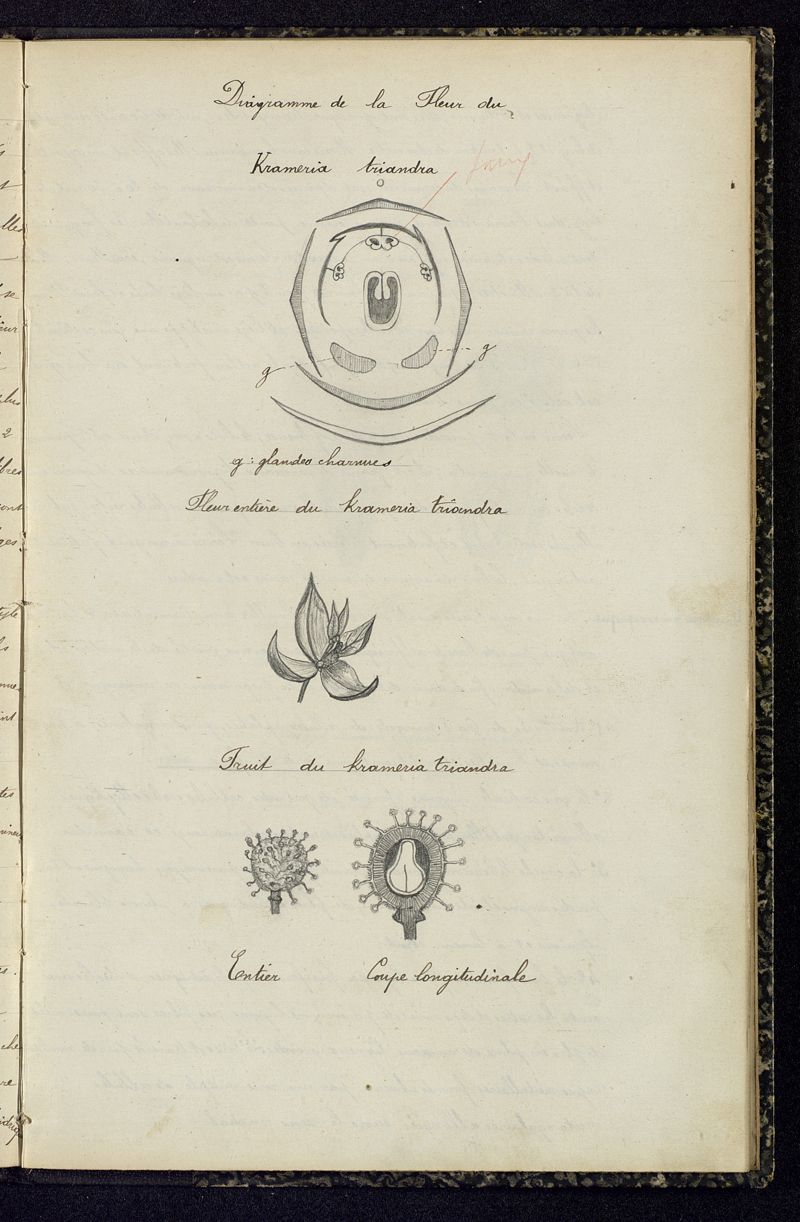 Diagramme de la Fleur du
Krameria triandra
g
g
g : glandes charnues
Fleur entière du krameria triandra
Fruit du krameria triandra
Entier
Coupe longitudinale